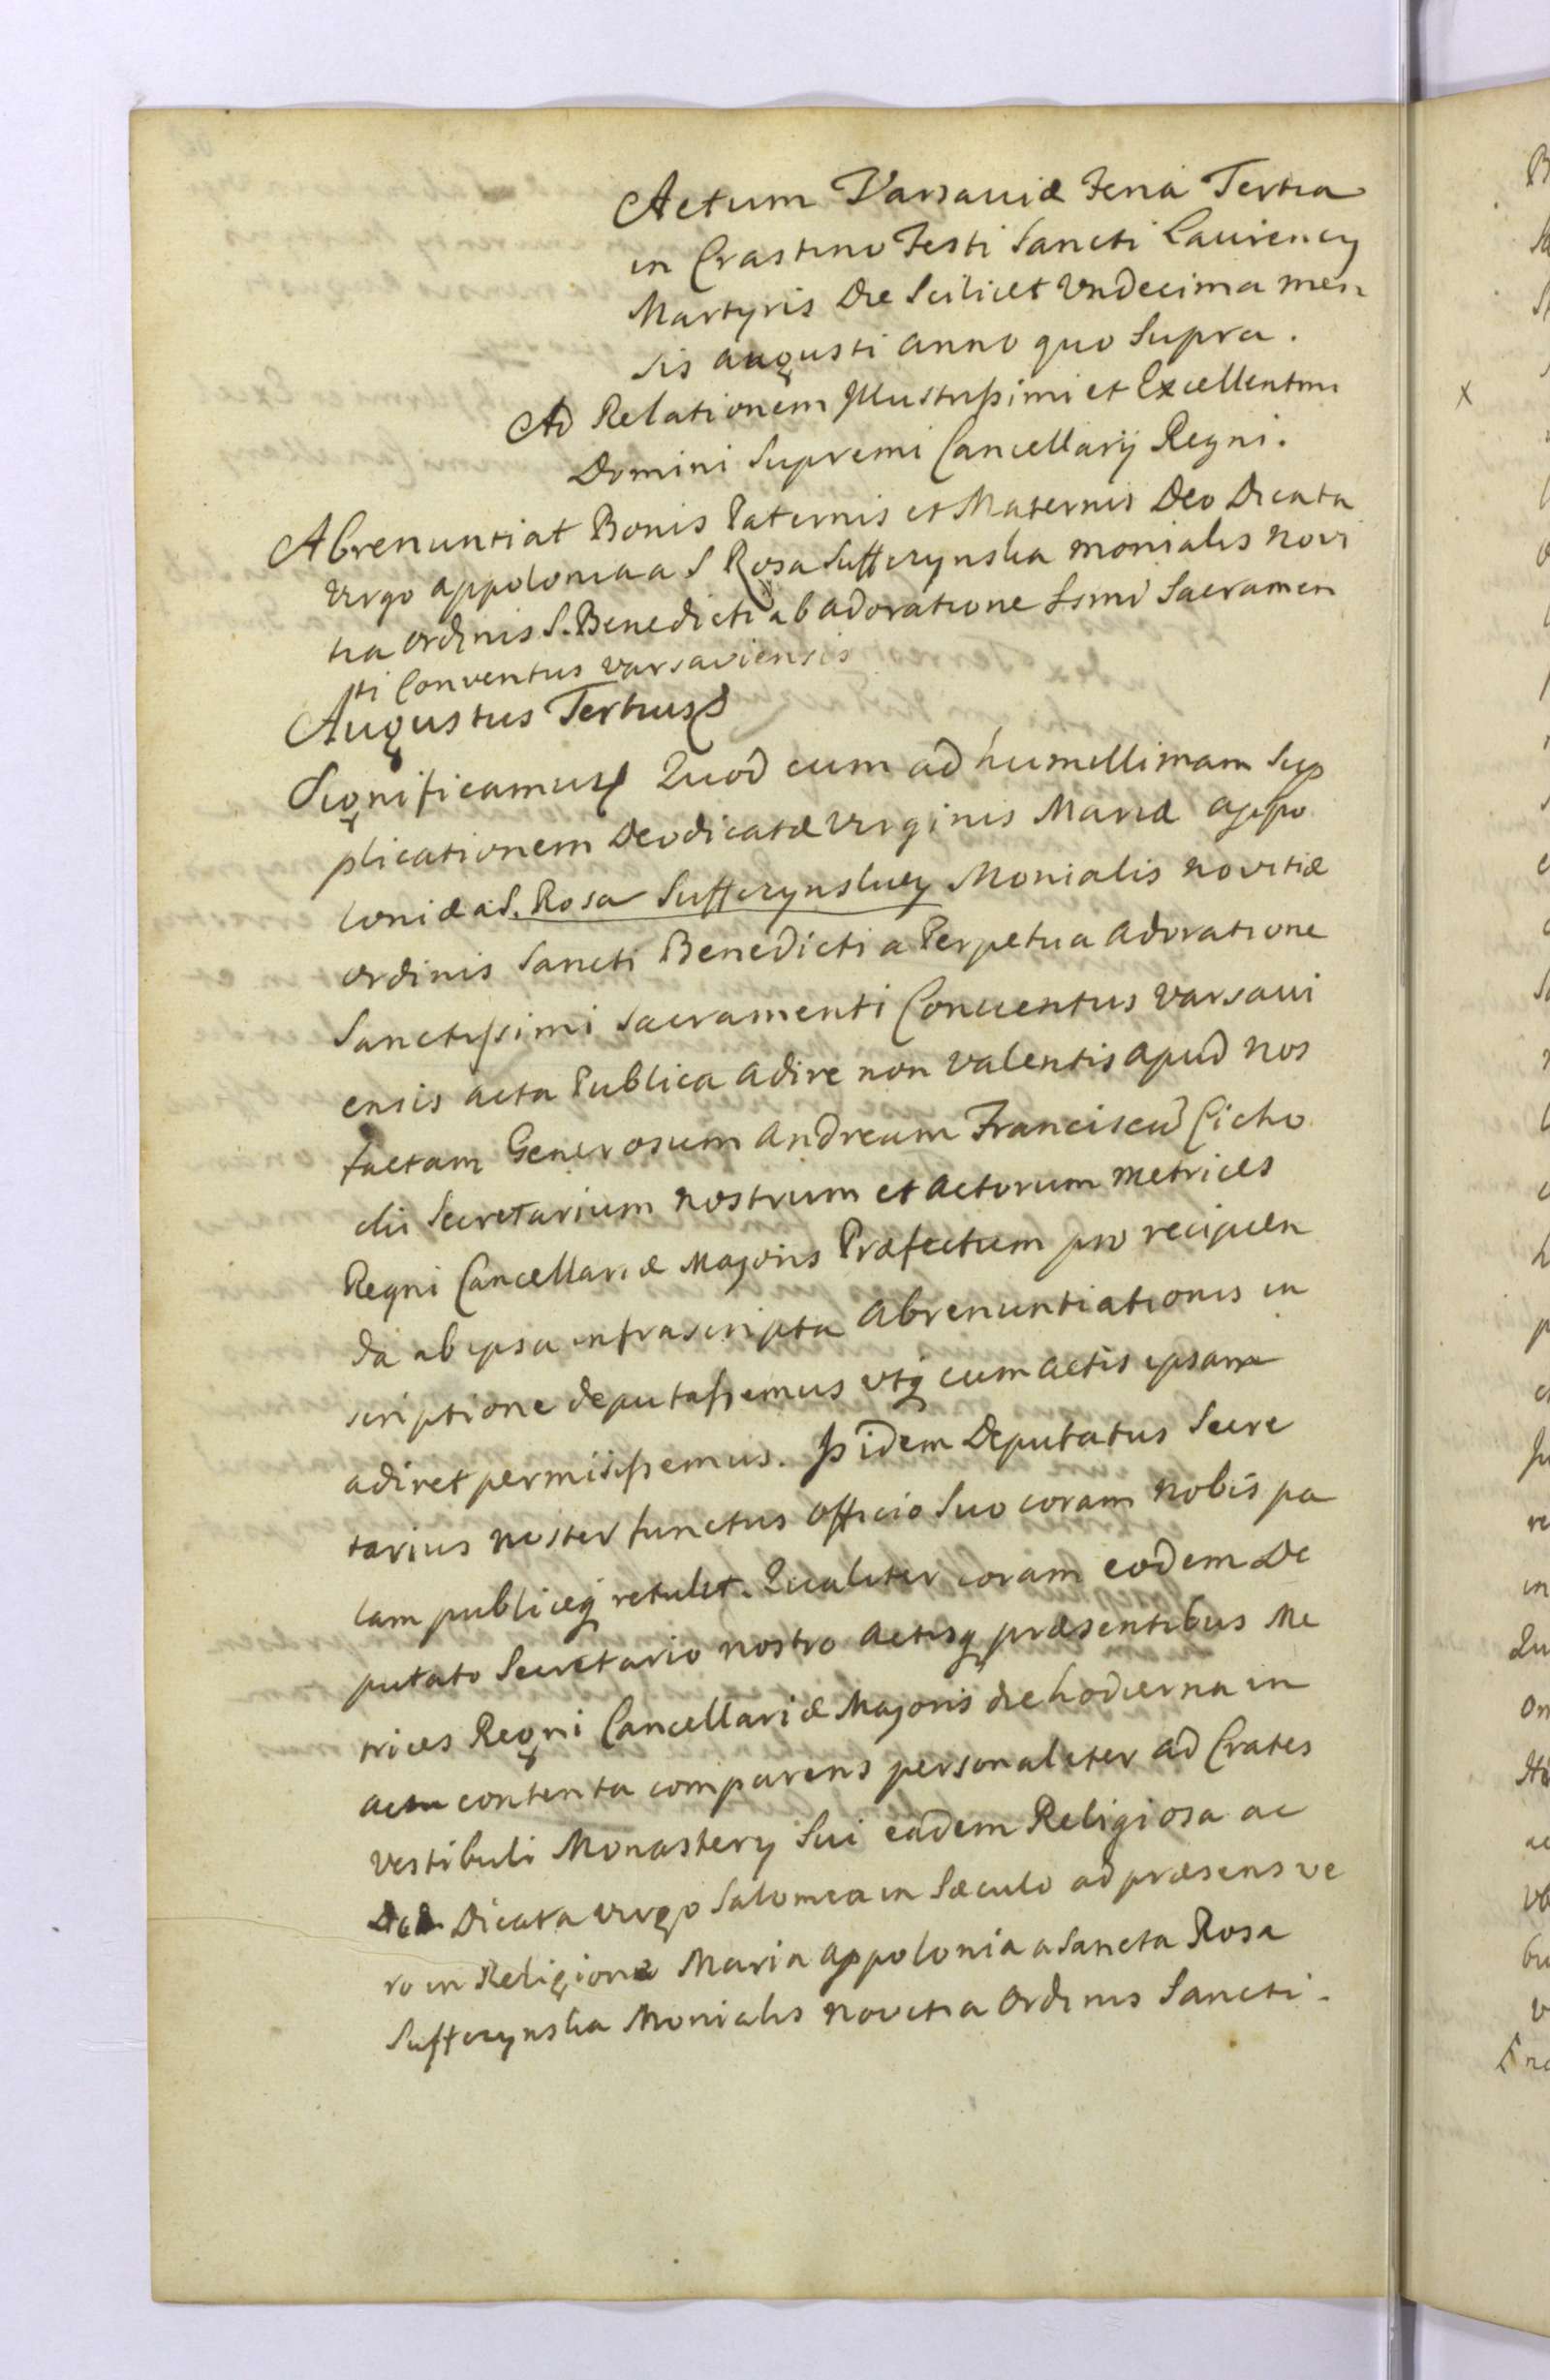 Actum Varsaviæ Feria Tertia
in Crastino Festi Sancti Laurencij
Martyris Die Scilicet Undecima men
sis Augusti Anno quo Supra.
Ad Relationem Illustrissimi et Excellentmi
Domini Supremi Cancellarij Regni.
Abrenuntiat Bonis Paternis et Maternis Deo Dicata
Virgo Appolonia a S Rosa Suffczynska Monialis Novi
tia Ordinis S. Benedicti ab Adoratione Ssmi Sacramen
ti Conventus Varsaviensis
Augustus Tertius
Significamus Quod cum ad humillimam Sup
plicationem Deodicatæ Virginis Mariæ Appo
loniæ a S. Rosa Suffczynskiey Monialis Novitiæ
Ordinis Sancti Benedicti a Perpetua Adoratione
Sanctissimi Sacramenti Conventus Varsavi
ensis Acta Publica Adire non valentis apud Nos
factam Generosum Andream Franciscū Cicho
cki Secretarium Nostrum et Actorum Metrices
Regni Cancellariæ Majoris Præfectum pro recipien
da ab ipsa infrascripta Abrenuntiationis in
scriptione deputassemus utq cum Actis ipsam
adiret permisissemus. Is idem Deputatus Secre
tarius Noster functus Officio Suo coram Nobis pa
lam publiceq retulit. Qualiter coram eodem De
putato Secretario Nostro Actisq præsentibus Me
trices Regni Cancellariæ Majoris die hodierna in
actu contenta comparens personaliter ad Crates
Vestibuli Monastery Sui eadem Religiosa ac
Deo Dicata Virgo Salomea in Sæculo ad præsens ve
ro in Religione Maria Appolonia a Sancta Rosa
Suffczynska Monialis Novitia Ordinis Sancti